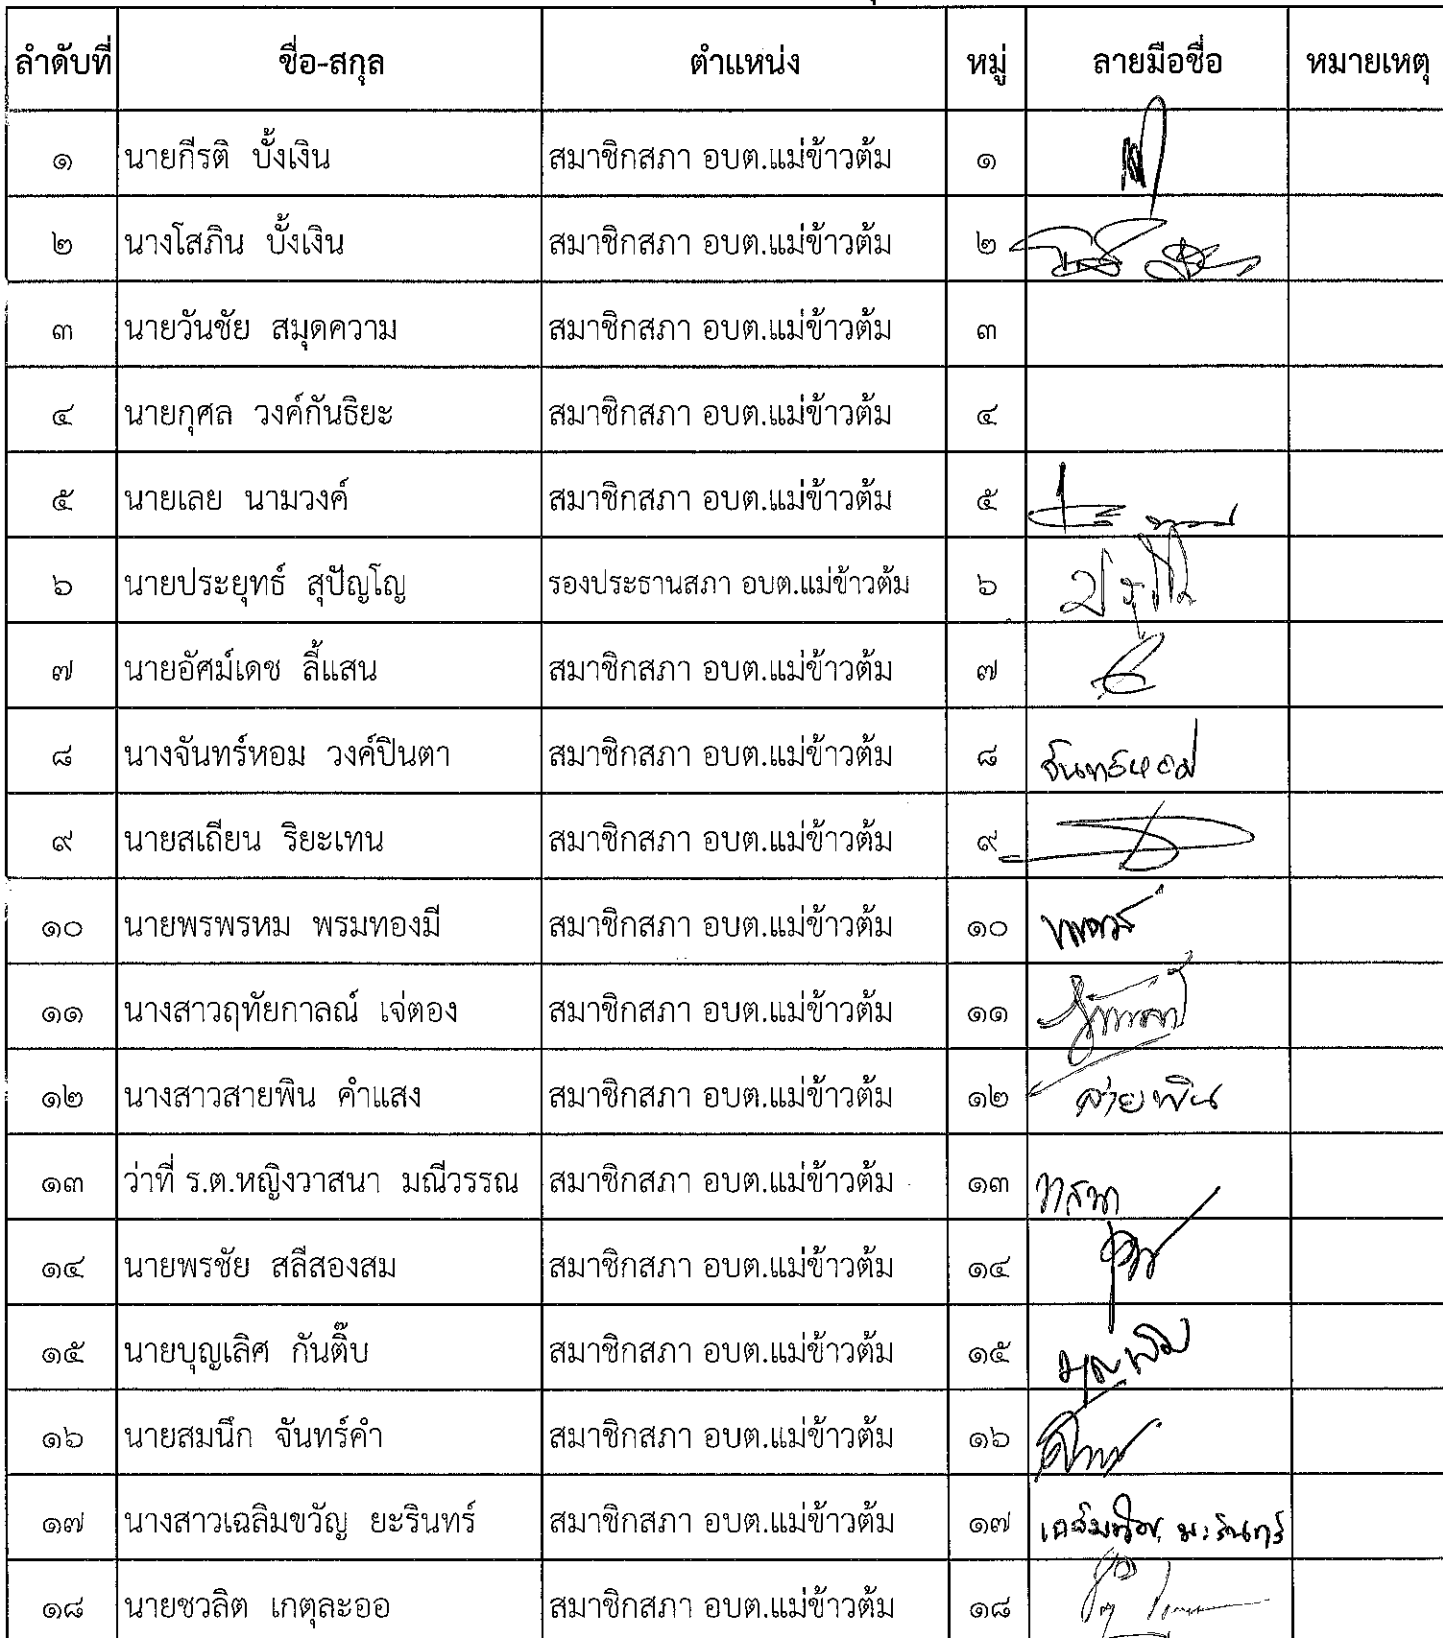 ลำดับที่ ชื่อ-สกุล ตำแหน่ง หมู่ ลายมือชื่อ หมายเหตุ
๑ นายกีรติ บั้งเงิน สมาชิกสภา อบต.แม่ข้าวต้ม ๑
๒ นางโสภิน บั้งเงิน สมาชิกสภา อบต.แม่ข้าวต้ม ๒
๓ นายวันชัย สมุดความ สมาชิกสภา อบต.แม่ข้าวต้ม ๓
๔ นายกุศล วงค์กันธิยะ สมาชิกสภา อบต.แม่ข้าวต้ม ๔
๕ นายเลย นามวงค์ สมาชิกสภา อบต.แม่ข้าวต้ม ๕
๖ นายประยุทธ์ สุปัญโญ รองประธานสภา อบต.แม่ข้าวต้ม ๖
๗ นายอัศม์เดช ลี้แสน สมาชิกสภา อบต.แม่ข้าวต้ม ๗
๘ นางจันทร์หอม วงค์ปินตา สมาชิกสภา อบต.แม่ข้าวต้ม ๘ จันทร์หอม
๙ นายสเถียน ริยะเทน สมาชิกสภา อบต.แม่ข้าวต้ม ๙
๑๐ นายพรพรหม พรมทองมี สมาชิกสภา อบต.แม่ข้าวต้ม ๑๐
๑๑ นางสาวฤทัยกาลณ์ เจ่ตอง สมาชิกสภา อบต.แม่ข้าวต้ม ๑๑
๑๒ นางสาวสายพิน คำแสง สมาชิกสภา อบต.แม่ข้าวต้ม ๑๒ สายพิน
๑๓ ว่าที่ ร.ต.หญิงวาสนา มณีวรรณ สมาชิกสภา อบต.แม่ข้าวต้ม ๑๓ วาสนา
๑๔ นายพรชัย สลีสองสม สมาชิกสภา อบต.แม่ข้าวต้ม ๑๔
๑๕ นายบุญเลิศ กันติ๊บ สมาชิกสภา อบต.แม่ข้าวต้ม ๑๕
๑๖ นายสมนึก จันทร์คำ สมาชิกสภา อบต.แม่ข้าวต้ม ๑๖
๑๗ นางสาวเฉลิมขวัญ ยะรินทร์ สมาชิกสภา อบต.แม่ข้าวต้ม ๑๗ เฉลิมขวัญ ยะรินทร์
๑๘ นายชวลิต เกตุละออ สมาชิกสภา อบต.แม่ข้าวต้ม ๑๘